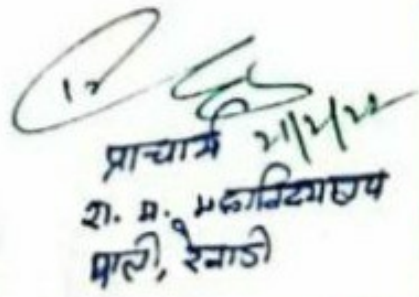 प्राचार्य 21/2/22
रा. म. महाविद्यालय
पाली, रेवाड़ी